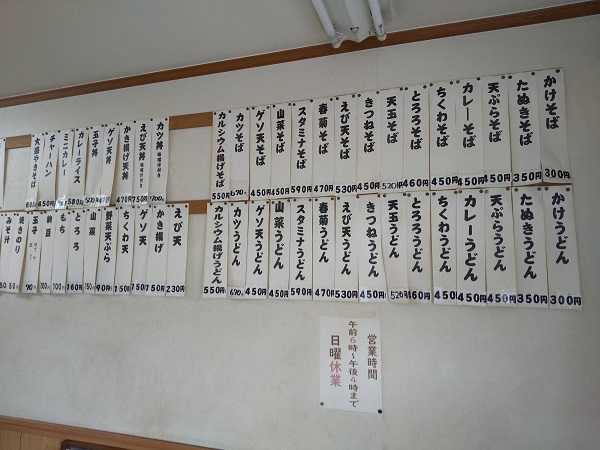 かけそば 300円
たぬきそば 350円
天ぷらそば 450円
カレーそば 450円
ちくわそば 450円
とろろそば 460円
天玉そば 520円
きつねそば 450円
えび天そば 530円
春菊そば 470円
スタミナそば 590円
山菜そば 450円
ゲソ天そば 450円
カツそば 670円
カルシウム揚げそば 550円
かけうどん 300円
たぬきうどん 350円
天ぷらうどん 450円
カレーうどん 450円
ちくわうどん 450円
とろろうどん 460円
天玉うどん 520円
きつねうどん 450円
えび天うどん 530円
春菊うどん 470円
スタミナうどん 590円
山菜うどん 450円
ゲソ天うどん 450円
カツうどん 670円
カルシウム揚げうどん 550円
カツ丼 700円
えび天丼 750円
かき揚げ天丼 470円
ゲソ天丼
玉子丼
カレーライス 580円
ミニカレー
チャーハン 450円
大盛やきそば
えび天 230円
かき揚げ 150円
ゲソ天
ちくわ天 150円
野菜天ぷら
山菜 150円
とろろ 160円
もち 100円
納豆
玉子 90円
焼きのり
みそ汁
営業時間
午前6時～午後4時まで
日曜休業